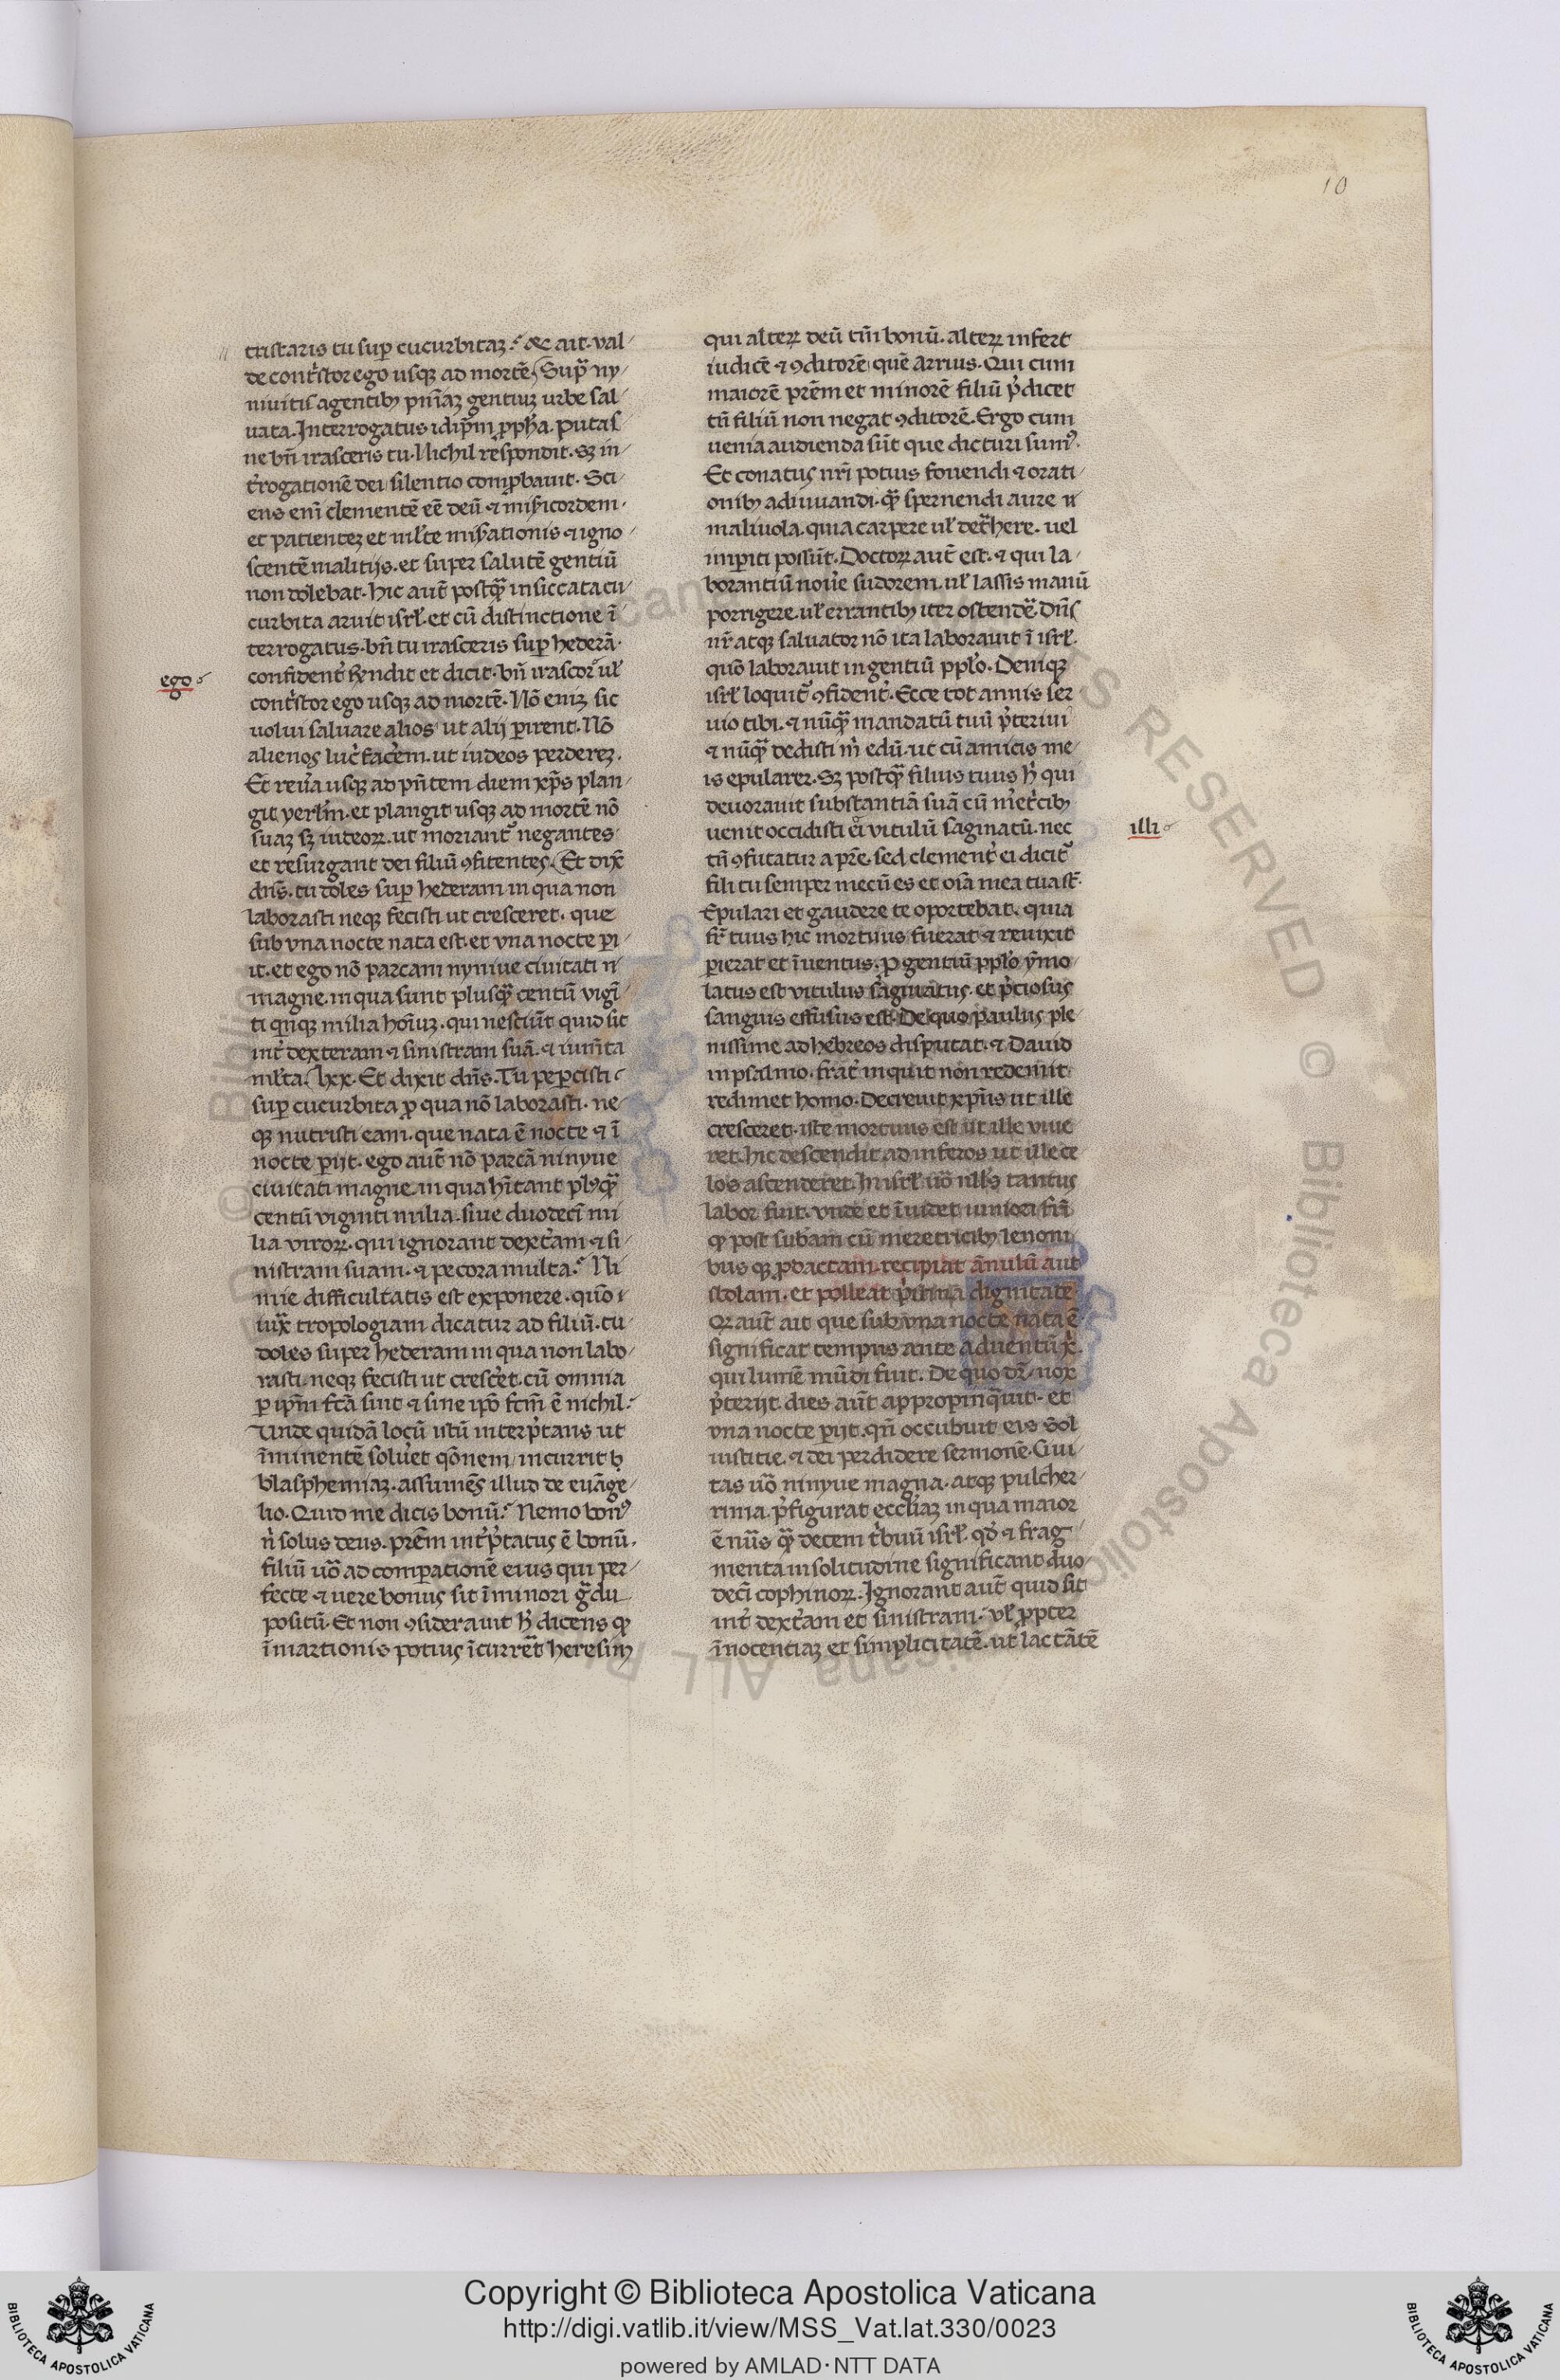 10
tristaris tu sup̱ cucurbitaꝫ.᷎ ⁊c ait. val
de cont͛stor ego usqꝫ ad mortē. Sup͛ ny
niuitis agentibꝫ pn̄iaꝫ gentiuꝫ urbe sal
uata. Interrogatus idip̄m ꝓph̄a. putas
ne bn̄ irasceris tu. Nichil respondit. sꝫ in
t͛rogationē dei silentio comꝓbauit. Sci
ens eni clementē eē deū ⁊ mi͛sicordem.
et patientez et ml̄te mis͛ationis ⁊ igno
scentē malitijs. et super salutē gentiū
non dolebat. hic aut̄ postqᷓ insiccata cu
curbita aruit isrl̄. et cū distinctione ī
terrogatus. bn̄ tu irasceris sup̱ hederā.
confident͛ rn̄dit et dicit. bn̄ irascor ul̄
ego
cont͛stor ego usqꝫ ad mortē. Nō eniꝫ sic
uolui saluare alios ut alij p̱irent. Nō
alienos luc͛facem. ut iudeos perdereꝫ.
Et reu͛a usqꝫ ad pn̄tem diem xp̄s plan
git yerl̄m. et plangit usqꝫ ad mortē nō
suaꝫ sꝫ iudeoꝝ. ut moriant᷑ negantes
et resurgant dei filiū ꝯfitentes. Et dix̄
dn̄s. tu doles sup̱ hederam in qua non
laborasti neqꝫ fecisti ut cresceret. que
sub vna nocte nata est. et vna nocte p̱i
it. et ego nō parcam nyniue ciuitati
magne. in qua sunt plusqᷓ centū vigī
ti qnqꝫ milia hoīuꝫ. qui nesciūt quid sit
int͛ dexteram ⁊ sinistram suā. ⁊ ium̄ta
ml̄ta. lxx. Et dixit dn̄s. Tu pep̱cisti
sup̱ cucurbita ꝓ qua nō laborasti. ne
qꝫ nutristi eam. que nata ē nocte ⁊ ī
nocte p̱ijt. ego aut̄ nō parcā ninyue
ciuitati magne in qua hītant pl᷒qᷓ
centū viginti milia. siue duodecī mi
lia viroꝝ. qui ignorant dext͛am ⁊ si
nistram suam. ⁊ pecora multa. Ni
mie difficultatis est exponere. quō
iux̄ tropologiam dicatur ad filiū. tu
doles super hederam in qua non labo
rasti. neqꝫ fecisti ut cresc͛et. cū omnia
p̱ ip̄m fcā sint ⁊ sine ip̄o fcm̄ ē nichil.
Unde quidā locū istū interp͛tans ut
īminentē solu͛et qō̄nem incurrit
blasphemiaꝫ. assumēs illud de euāge
lio. Quid me dicis bonū. Nemo bon᷒
n͛ solus deus. pr̄em int͛p͛tatus ē bonū.
filiū uō ad comp̱ationē eius qui per
fecte ⁊ uere bonus sit ī minori gᷓdu
positū. Et non ꝯsiderauit h͛ dicens ꝙ
ī martionis potius īcurr͛et heresim
qui alteꝝ deū tm̄ bonū. alteꝝ infert
iudicē ⁊ ꝯditorē quē Arrius. Qui cum
maiorē pr̄em et minorē filiū p͛dicet
tn̄ filiū non negat ꝯditorē. Ergo cum
uenia audienda sūt que dicturi sum᷒.
Et conatus nr̄i potius fouendi ⁊ orati
onibꝫ adiuuandi. qᷓ spernendi aure
maliuola. quia carpere ul̄ det͛here. uel
imp̱iti possūt. Doctoꝝ aut̄ est. ⁊ qui la
borantiū nou͛e sudorem. ul̄ lassis manū
porrigere. ul̄ errantibꝫ iter ostend͛e. Dn̄s
nr̄ atqꝫ saluator nō ita laborauit ī isrl̄.
quō laborauit in gentiū ppl̄o. Deniqꝫ
isrl̄ loquit᷑ ꝯfident͛. Ecce tot annis ser
uio tibi. ⁊ nūqᷓ mandatū tuū p͛teriui
⁊ nūqᷓ dedisti m͛ edū. ut cū amicis me
is epularer. Sꝫ postqᷓ filius tuus h͛ qui
deuorauit substantiā suā cū m͛et͛cibꝫ
uenit occidisti ei vitulū saginatū. nec
illi
tn̄ ꝯfutatur a pr̄e. sed clement͛ ei dicit᷑
fili tu semper mecū es et oīa mea tua st̄.
Epulari et gaudere te oportebat. quia
fr̄ tuus hic mortuus fuerat ⁊ reuixit
p̱ierat et īuentus. Ꝓ gentiū ppl̄o ymo
latus est vitulus saginatus. et p͛ciosus
sanguis effusus est. De quo paulus ple
nissime ad hebreos disputat. ⁊ Dauid
in psalmo. frat͛ inquit non redemit
redimet homo. Decreuit xp̄us ut ille
cresceret. iste mortuus est ut ille viue
ret. hic descendit ad inferos ut ille ce
los ascenderet. In isrl̄ uō null᷒ tantus
labor fuit. vnde et īuidet iuniori fr̄i
ꝙ post subam cū meretricibꝫ lenoni
busqꝫ ꝓdactam. recipiat ānulū aut
stolam. et polleat p͛stina dignitate
Qr̄ aut̄ ait que sub vna nocte nata ē
significat tempus ante aduentū x͛.
qui lumē mūdi fuit. De quo dr̄. nox
p͛terijt. dies aūt appropinqᷓuit. et
vna nocte p̱ijt. qn̄ occubuit eis sol
iustitie. ⁊ dei perdidere sermonē. Ciui
tas uō ninyue magna. atqꝫ pulcher
rima. p͛figurat eccl̄iaꝫ in qua maior
ē nūs qᷓ decem t͛buū isrl̄. qd̄ ⁊ frag
menta in solitudine significant duo
decī cophinoꝝ. Ignorant aut̄ quid sit
int͛ dext͛am et sinistram. ul̄ ꝓpter
īnocentiaꝫ et simplicitatē. ut lactātē
© Biblioteca Apostolica Vaticana ALL RIGHTS RESERVED
Copyright © Biblioteca Apostolica Vaticana
http://digi.vatlib.it/view/MSS_Vat.lat.330/0023
powered by AMLAD·NTT DATA
BIBLIOTECA APOSTOLICA VATICANA
BIBLIOTECA APOSTOLICA VATICANA